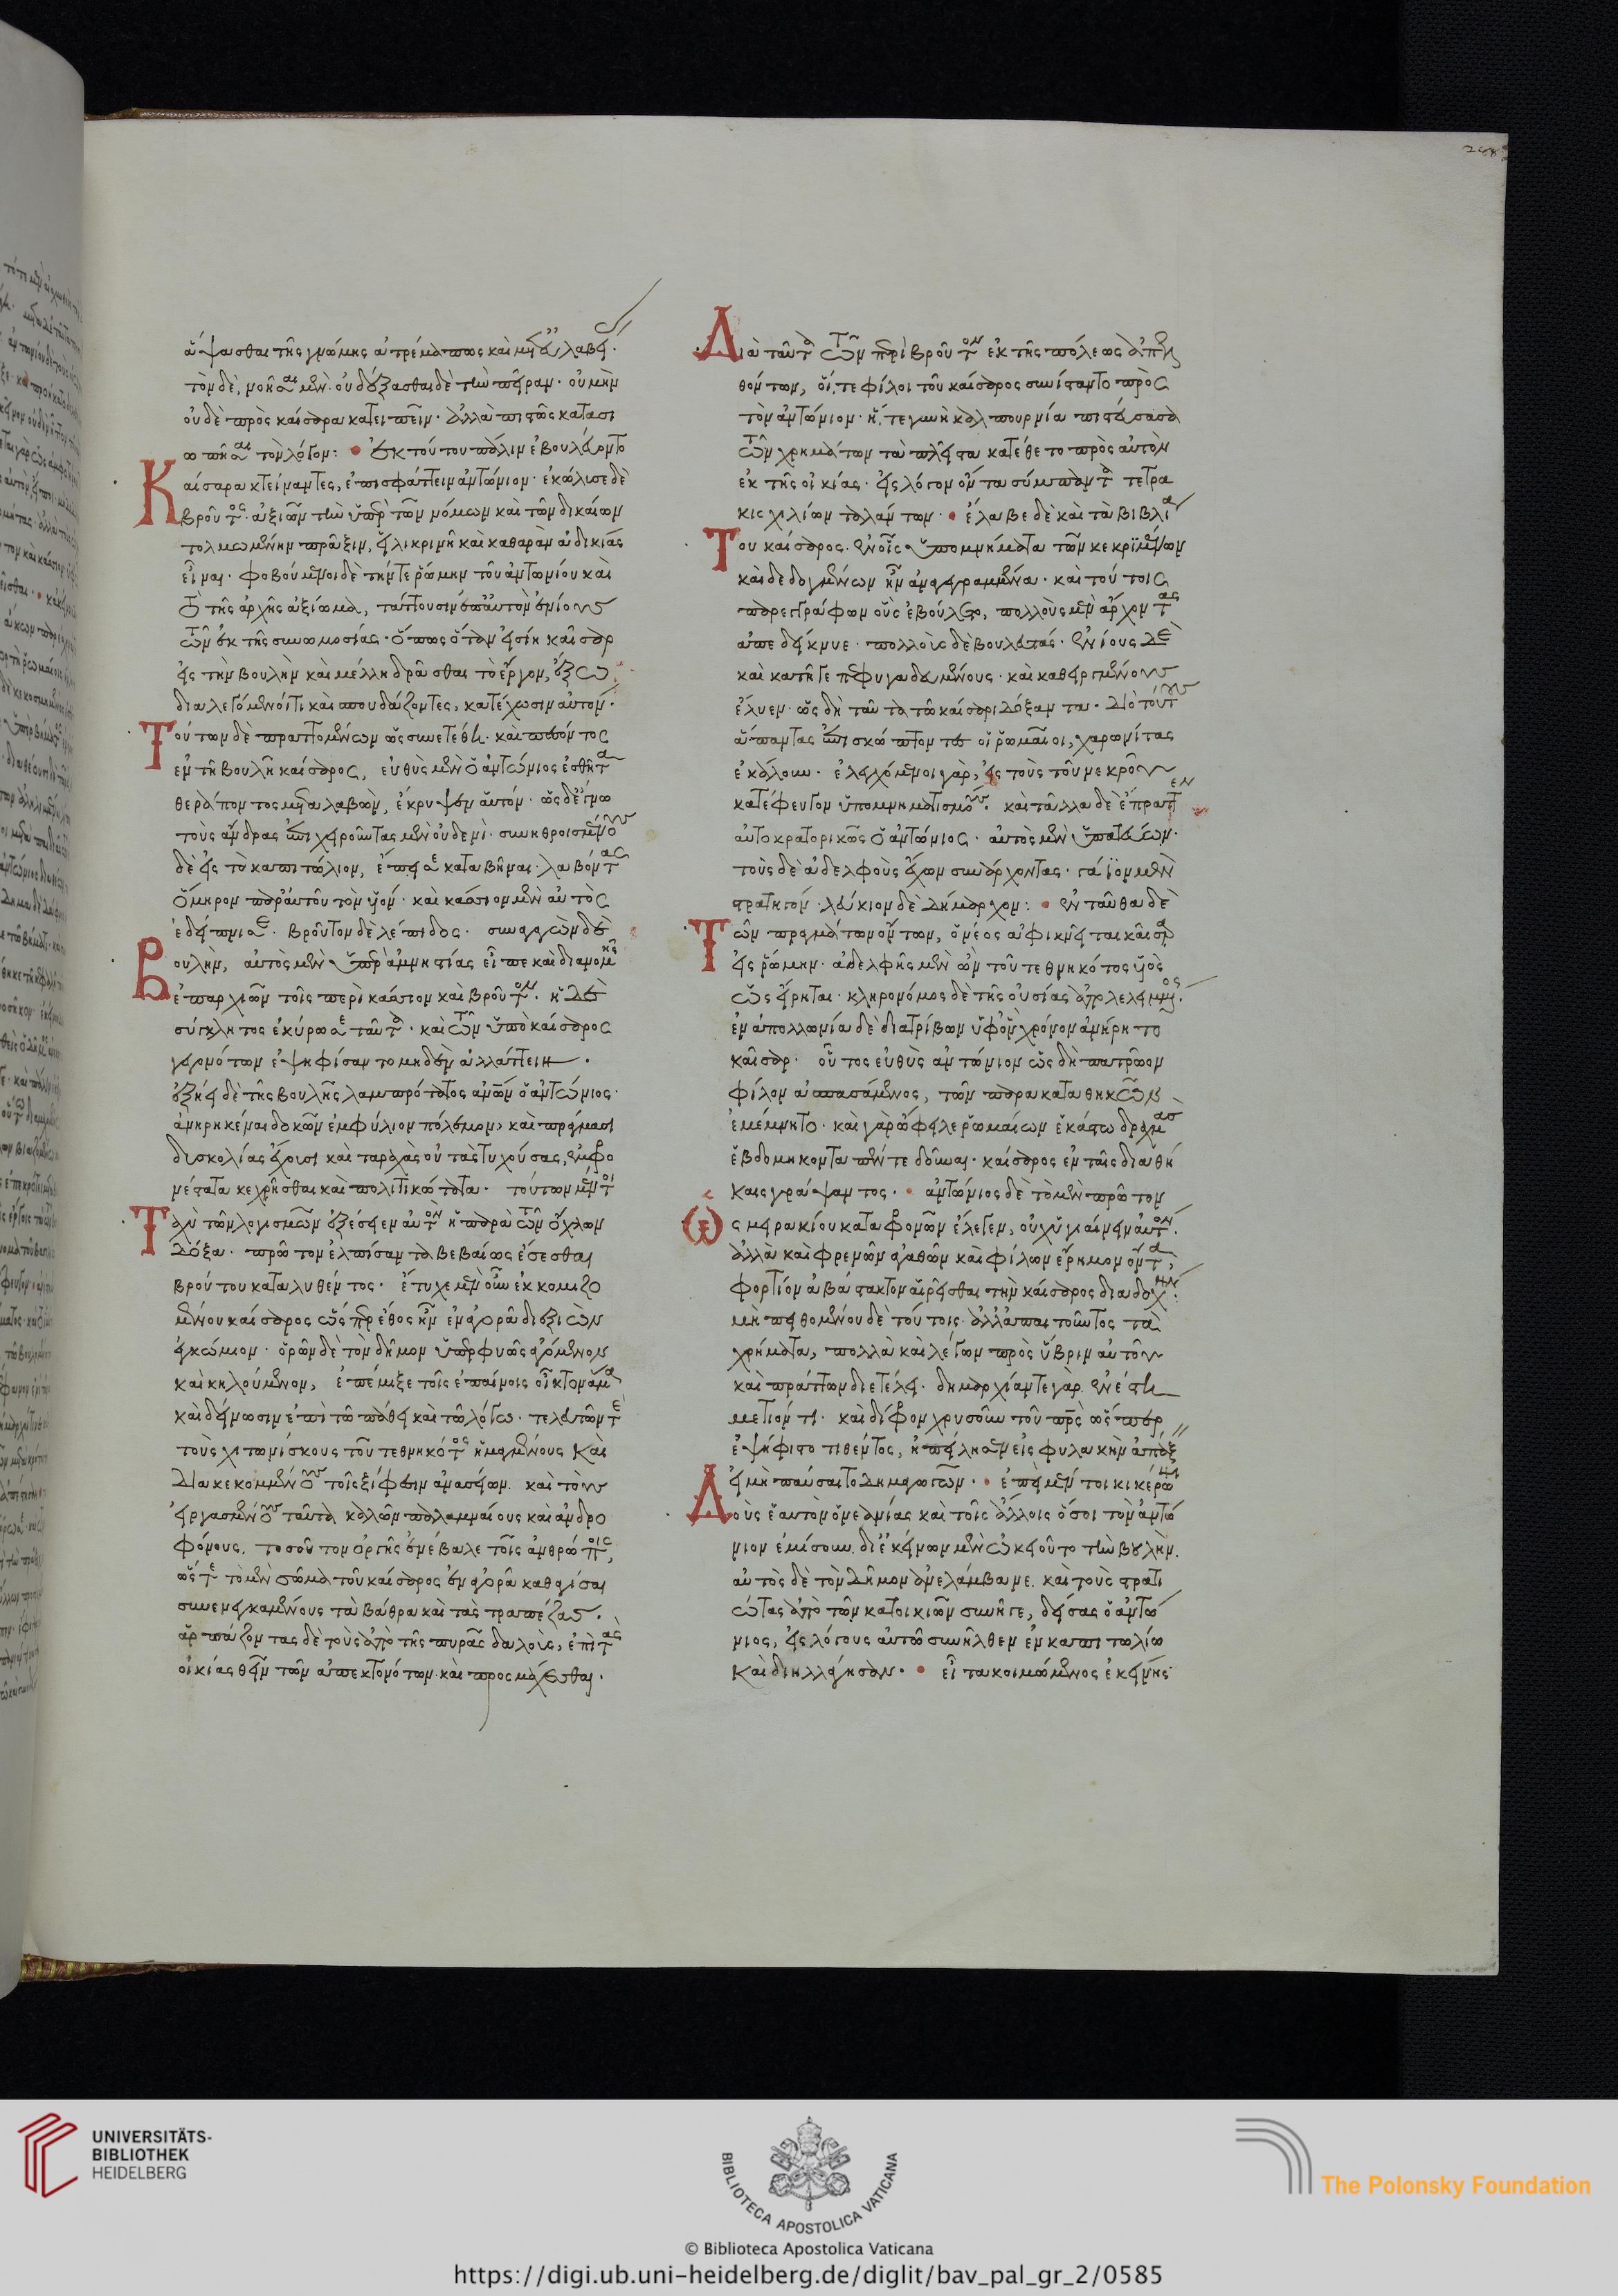 ἅψασθαι τῆς γνώμης ἀτρέμα πως καὶ μετ' εὐλαβεί.
τὸν δὲ, νοῆσαι μὲν. οὐ δέξασθαι δὲ τὴν πεῖραν. οὐ μὴν
οὐδὲ πρὸς καίσαρα κατειπεῖν. ἀλλὰ πιστῶς κατασι
ωπῆσαι τὸν λόγον: ἐκ τούτου πάλιν ἐβουλεύοντο
Καίσαρα κτείναντες, ἐπισφάττειν ἀντώνιον. ἐκώλυσε δὲ
βροῦτος. ἀξιῶν τὴν ὑπὲρ τῶν νόμων καὶ τῶν δικαίων
τολμωμένην πρᾶξιν, εἰλικρινῆ καὶ καθαρὰν ἀδικίας
εἶναι. φοβούμενοι δὲ τήν τε ῥώμην τοῦ ἀντωνίου καὶ
τὸ τῆς ἀρχῆς ἀξίωμα, τάττουσιν ἐπ' αὐτὸν ἐνίους
τῶν ἐκ τῆς συνωμοσίας. ὅπως ὅταν εἰσίη καῖσαρ
εἰς τὴν βουλὴν καὶ μέλλη δρᾶσθαι τὸ ἔργον, ἔξω
διαλεγόμενοί τι καὶ σπουδάζοντες, κατέχωσιν αὐτόν.
Τούτων δὲ πραττομένων ὡς συνετέθη. καὶ πεσόντος
ἐν τῆ βουλῆ καίσαρος, εὐθὺς μὲν ὁ ἀντώνιος ἐσθῆτα
θεράποντος μεταλαβὼν, ἔκρυψεν αὑτόν. ὡς δ' ἔγνω
τοὺς ἄνδρας ἐπιχειροῦντας μὲν οὐδενὶ. συνηθροισμένους
δὲ εἰς τὸ καπιτώλιον, ἔπεισε καταβῆναι. λαβόντας
ὅμηρον παρ' αὐτοῦ τὸν υἱόν. καὶ κάσσιον μὲν αὐτὸς
ἐδείπνισε. βροῦτον δὲ λέπιδος. συναγαγὼν δὲ
Βουλὴν, αὐτὸς μὲν ὑπὲρ ἀμνηστίας εἶπε καὶ διανομῆς
ἐπαρχιῶν τοῖς περὶ κάσσιον καὶ βροῦτον. ἡ δὲ
σύγκλητος ἐκύρωσε ταῦτα. καὶ τῶν ὑπὸ καίσαρος
γεγονότων ἐψηφίσαντο μηδὲν ἀλλάττειν.
ἐξήει δὲ τῆς βουλῆς λαμπρότατος ἀνθρώπων ὁ ἀντώνιος.
ἀνηρηκέναι δοκῶν ἐμφύλιον πόλεμον, καὶ πράγμασι
δυσκολίας ἔχουσι καὶ ταραχὰς οὐ τὰς τυχούσας, ἐμφρο
νέστατα κεχρῆσθαι καὶ πολιτικώτατα. τούτων μέντοι
Ταχὺ τῶν λογισμῶν ἐξέσεισεν αὐτὸν ἡ παρὰ τῶν ὄχλων
δόξα. πρῶτον ἐλπίσαντα βεβαίως ἔσεσθαι
βρούτου καταλυθέντος. ἔτυχε μὲν οὖν ἐκκομιζο
μένου καίσαρος ὥσπερ ἔθος ἦν ἐν ἀγορᾶ διεξιὼν
ἐγκώμιον. ὁρῶν δὲ τὸν δῆμον ὑπερφυῶς ἀγόμενον
καὶ κηλούμενον, ἐπέμιξε τοῖς ἐπαίνοις οἶκτον ἅμα
καὶ δείνωσιν ἐπὶ τῶ πάθει καὶ τῶ λόγω. τελευτῶντι
τοὺς χιτωνίσκους τοῦ τεθνηκότος ἡμαγμένους καὶ
διακεκομμένους τοῖς ξίφεσιν ἀνασείων. καὶ τοὺς
εἰργασμένους ταῦτα καλῶν παλαμναίους καὶ ἀνδρο
φόνους. τοσοῦτον ὀργῆς ἐνέβαλε τοῖς ἀνθρώποις,
ὥστε τὸ μὲν σῶμα τοῦ καίσαρος ἐν ἀγορᾶ καθαγίσαι
συνενεγκαμένους τὰ βάθρα καὶ τὰς τραπέζας.
ἁρπάζοντας δὲ τοὺς ἀπὸ τῆς πυρᾶς δαλοὺς, ἐπὶ τὰς
οἰκίας θεῖν τῶν ἀπεκτονότων καὶ προσμάχεσθαι.
Διὰ ταῦτα τῶν περὶ βροῦτον ἐκ τῆς πόλεως ἀπελ
θόντων, οἵ τε φίλοι τοῦ καίσαρος συνίσταντο πρὸς
τὸν ἀντώνιον. ἥ τε γυνὴ καλπουρνία πιστεύσασα
τῶν χρημάτων τὰ πλεῖστα κατέθετο πρὸς αὐτὸν
ἐκ τῆς οἰκίας. εἰς λόγον ὄντα σύμπαντα τετρα
κισχιλίων ταλάντων. ἔλαβε δὲ καὶ τὰ βιβλία
Του καίσαρος. ἐν οἷς ὑπομνήματα τῶν κεκριμένων
καὶ δεδογμένων ἦν ἀναγεγραμμένα. καὶ τούτοις
παρεγγράφων οὓς ἐβούλετο, πολλοὺς μὲν ἄρχοντας
ἀπεδείκνυε. πολλοὺς δὲ βουλευτάς. ἐνίους δὲ
καὶ κατῆγε πεφυγαδευμένους. καὶ καθειργμένους
ἔλυεν. ὡς δὴ ταῦτα τῶ καίσαρι δόξαντα. διὸ τούτους
ἅπαντας ἐπισκώπτοντες οἱ ῥωμαῖοι, χαρωνίτας
ἐκάλουν. ἐλεγχόμενοι γὰρ, εἰς τοὺς τοῦ νεκροῦ
κατέφευγον ὑπομνηματισμούς. καὶ τἄλλα δὲ ἔπραττεν
αὐτοκρατορικῶς ὁ ἀντώνιος. αὐτὸς μὲν ὑπατεύων.
τοὺς δὲ ἀδελφοὺς ἔχων συνάρχοντας. γάϊον μὲν
στρατηγόν. λεύκιον δὲ δήμαρχον: ἐνταῦθα δὲ
Τῶν πραγμάτων ὄντων, ὁ νέος ἀφικνεῖται καῖσαρ
εἰς ῥώμην. ἀδελφῆς μὲν ὢν τοῦ τεθνηκότος υἱὸς
ὡς εἴρηται. κληρονόμος δὲ τῆς οὐσίας ἀπολελειμμένος.
ἐν ἀπολλωνία δὲ διατρίβων ὑφ' ὃν χρόνον ἀνήρητο
καῖσαρ. οὗτος εὐθὺς ἀντώνιον ὡς δὴ πατρῶον
φίλον ἀσπασάμενος, τῶν παρακαταθηκῶν
ἐμέμνητο. καὶ γὰρ ὤφειλε ῥωμαίων ἑκάστω δραχμὰς
ἑβδομήκοντα πέντε δοῦναι. καίσαρος ἐν ταῖς διαθή
καις γράψαντος. ἀντώνιος δὲ τὸ μὲν πρῶτον
Ὡς μειρακίου καταφρονῶν ἔλεγεν, οὐχ ὑγιαίνειν αὐτόν.
ἀλλὰ καὶ φρενῶν ἀγαθῶν καὶ φίλων ἔρημον ὄντα,
φορτίον ἀβάστακτον αἴρεσθαι τὴν καίσαρος διαδοχήν.
μὴ πειθομένου δὲ τούτοις ἀλλ' ἀπαιτοῦντος τὰ
χρήματα, πολλὰ καὶ λέγων πρὸς ὕβριν αὐτοῦ
καὶ πράττων διετέλει. δημαρχίαν τε γὰρ ἐνέστη
μετιόντι. καὶ δίφρον χρυσοῦν τοῦ πατρὸς ὥσπερ
ἐψήφιστο τιθέντος, ἠπείλησεν εἰς φυλακὴν ἀπάξειν
εἰ μὴ παύσαιτο δημαγωγῶν. ἐπεὶ μέντοι κικέρωνι
Δοὺς ἑαυτὸν ὁ νεανίας καὶ τοῖς ἄλλοις ὅσοι τὸν ἀντώ
νιον ἐμίσουν. δι' ἐκείνων μὲν ὠκειοῦτο τὴν βουλὴν.
αὐτὸς δὲ τὸν δῆμον ἀνελάμβανε. καὶ τοὺς στρατι
ώτας ἀπὸ τῶν κατοικιῶν συνῆγε, δείσας ὁ ἀντώ
νιος, εἰς λόγους αὐτῶ συνῆλθεν ἐν καπιτωλίω
καὶ διηλλάγησαν. εἶτα κοιμώμενος ἐκείνης
UNIVERSITÄTS-
BIBLIOTHEK
HEIDELBERG
BIBLIOTECA APOSTOLICA VATICANA
The Polonsky Foundation
© Biblioteca Apostolica Vaticana
https://digi.ub.uni-heidelberg.de/diglit/bav_pal_gr_2/0585